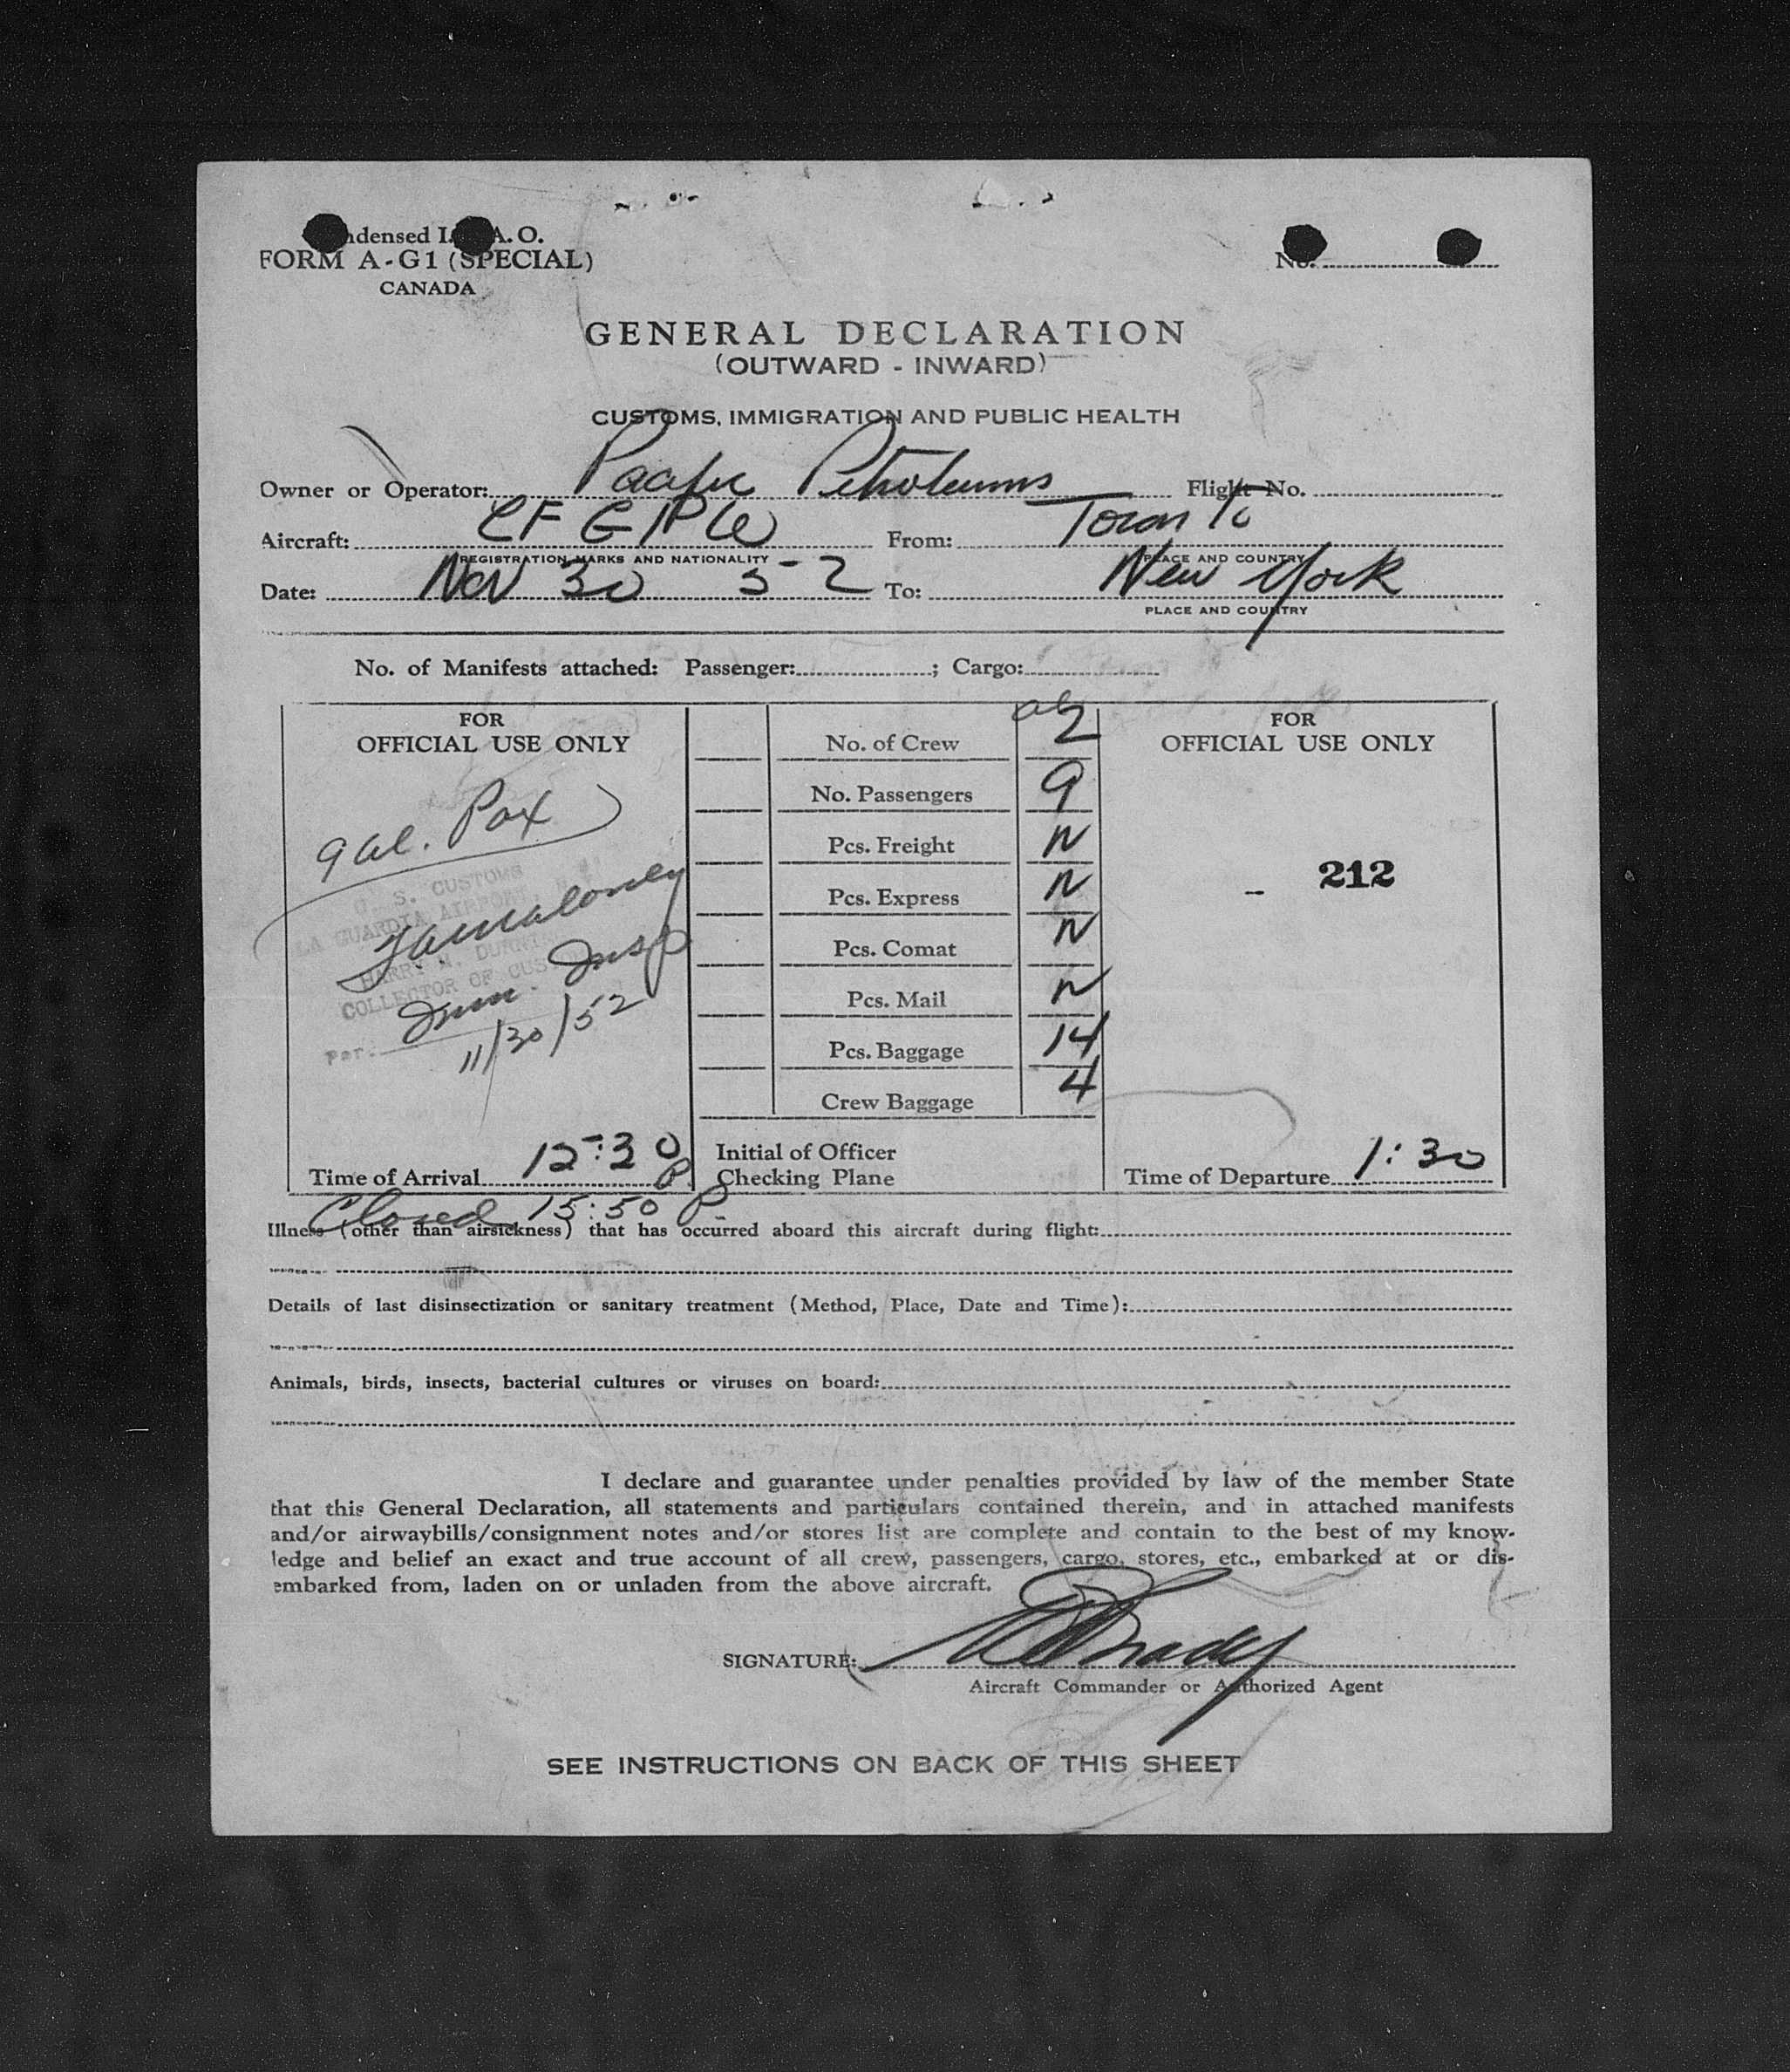 ndensed I. A. O.
FORM A-G1 (SPECIAL)
CANADA
No.
GENERAL DECLARATION
(OUTWARD - INWARD)
CUSTOMS, IMMIGRATION AND PUBLIC HEALTH
Owner or Operator: Pacific Petroleums Flight No.
Aircraft: CF GPW From: Toronto
REGISTRATION MARKS AND NATIONALITY PLACE AND COUNTRY
Date: Nov 30 52 To: New York
PLACE AND COUNTRY
No. of Manifests attached: Passenger: ; Cargo:
FOR
OFFICIAL USE ONLY
9 al. Pax
U. S. CUSTOMS
LA GUARDIA AIRPORT, N.Y.
HARRY M. DURNING
COLLECTOR OF CUSTOMS
Per:
Maloney
Imm. Insp
11/30/52
Time of Arrival 12:30 P.
No. of Crew 2
No. Passengers 9
Pcs. Freight N
Pcs. Express N
Pcs. Comat N
Pcs. Mail N
Pcs. Baggage 14
Crew Baggage 4
Initial of Officer
Checking Plane
FOR
OFFICIAL USE ONLY
- 212
Time of Departure 1:30
Closed 15:50 P.
Illness (other than airsickness) that has occurred aboard this aircraft during flight:
Details of last disinsectization or sanitary treatment (Method, Place, Date and Time):
Animals, birds, insects, bacterial cultures or viruses on board:
I declare and guarantee under penalties provided by law of the member State
that this General Declaration, all statements and particulars contained therein, and in attached manifests
and/or airwaybills/consignment notes and/or stores list are complete and contain to the best of my know-
ledge and belief an exact and true account of all crew, passengers, cargo, stores, etc., embarked at or dis-
embarked from, laden on or unladen from the above aircraft.
SIGNATURE: Brady
Aircraft Commander or Authorized Agent
SEE INSTRUCTIONS ON BACK OF THIS SHEET